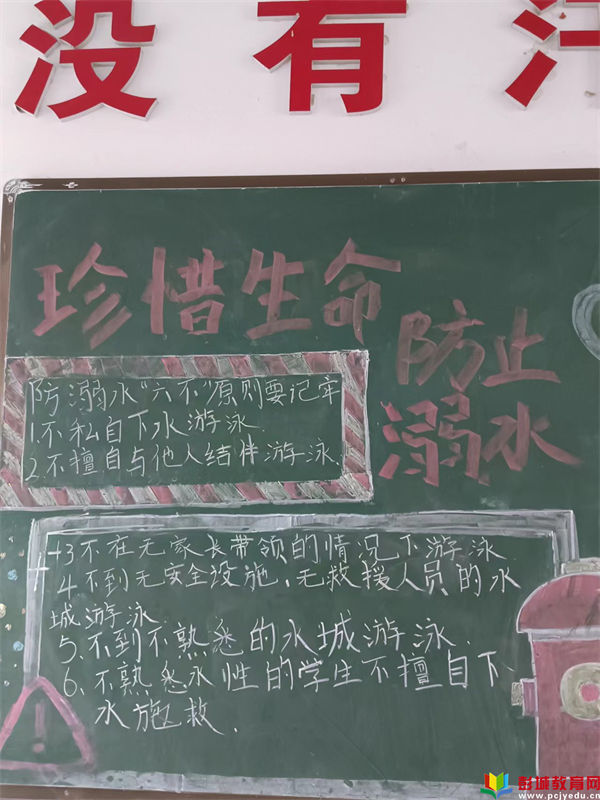 没有汗
珍惜生命
防止
溺水
防溺水“六不”原则要记牢
1.不私自下水游泳
2.不擅自与他人结伴游泳.
3不在无家长带领的情况下游泳
4不到无安全设施、无救援人员的水
城游泳
5、不到不熟悉的水城游泳.
6、不熟悉水性的学生不擅自下
水施救.
彭城教育网
www.pcjyedu.cn